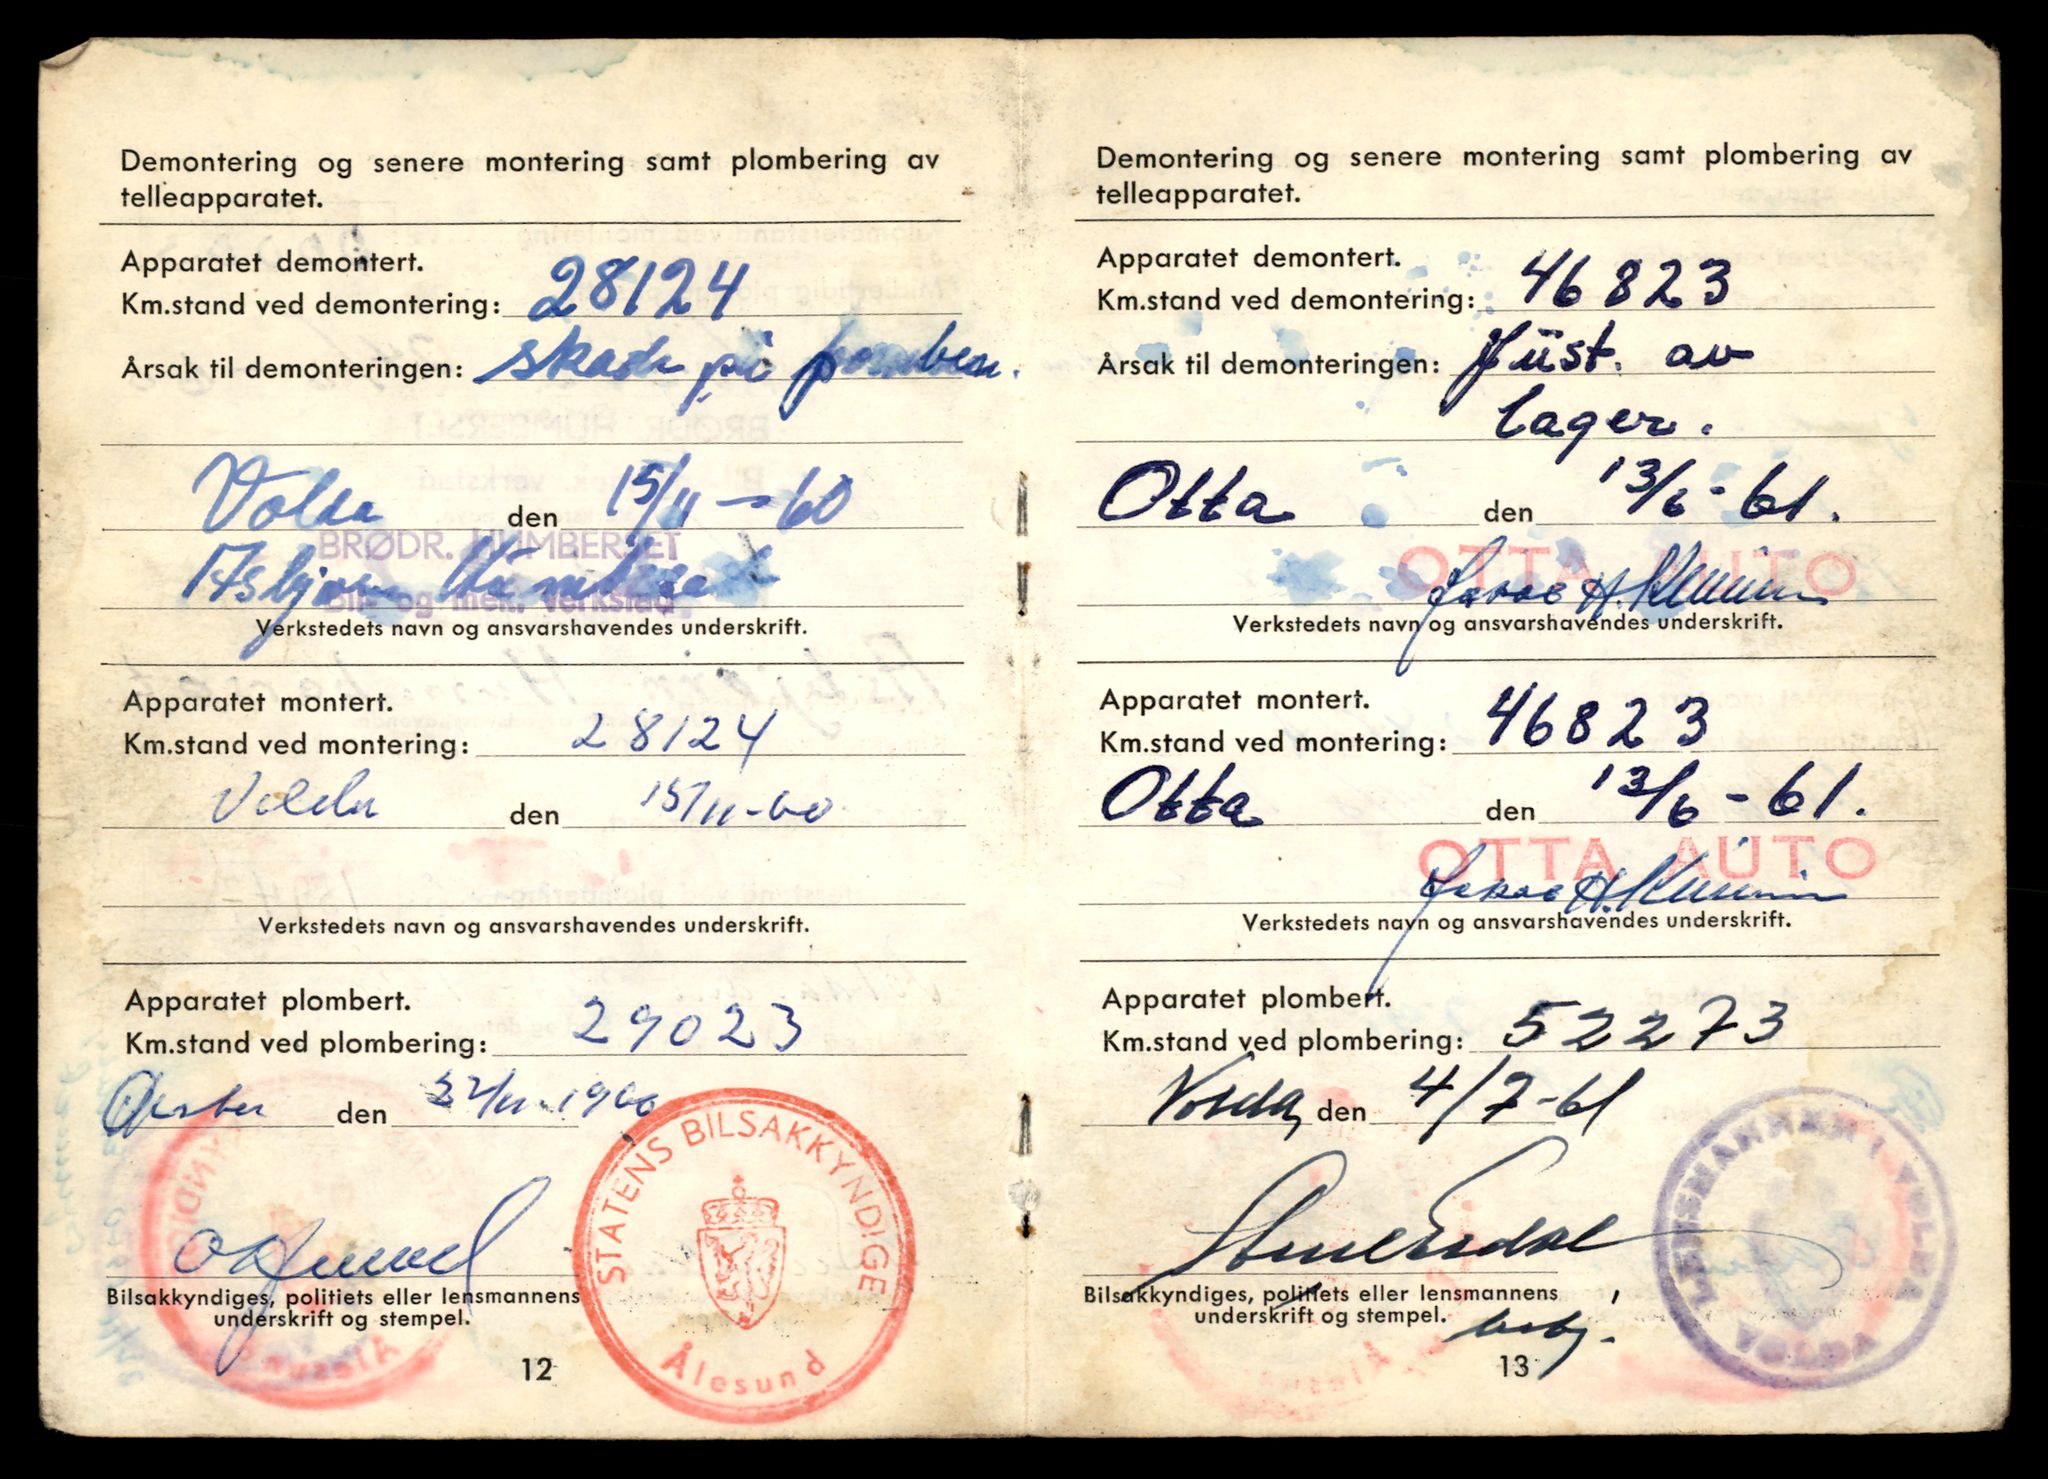 Demontering og senere montering samt plombering av
telleapparatet.
Apparatet demontert.
Km.stand ved demontering: 28124
Årsak til demonteringen: skade på
Volda den 15/11-60
BRØDR. HUMBERSET
Asbjørn Humberset
Bil- og mek. verkstad
Verkstedets navn og ansvarshavendes underskrift.
Apparatet montert.
Km.stand ved montering: 28124
Volda den 15/11-60
Verkstedets navn og ansvarshavendes underskrift.
Apparatet plombert.
Km.stand ved plombering: 29023
Ørsta den 22/11-1960
STATENS BILSAKKYNDIGE
Ålesund
Bilsakkyndiges, politiets eller lensmannens
underskrift og stempel.
12
Demontering og senere montering samt plombering av
telleapparatet.
Apparatet demontert.
Km.stand ved demontering: 46823
Årsak til demonteringen: Just. av
lager.
Otta den 13/6-61.
OTTA AUTO
Jakob H.
Verkstedets navn og ansvarshavendes underskrift.
Apparatet montert.
Km.stand ved montering: 46823
Otta den 13/6-61.
OTTA AUTO
Jakob H.
Verkstedets navn og ansvarshavendes underskrift.
Apparatet plombert.
Km.stand ved plombering: 52273
Volda, den 4/7-61
LENSMANNEN I VOLDA
VOLDA
Bilsakkyndiges, politiets eller lensmannens
underskrift og stempel.
13